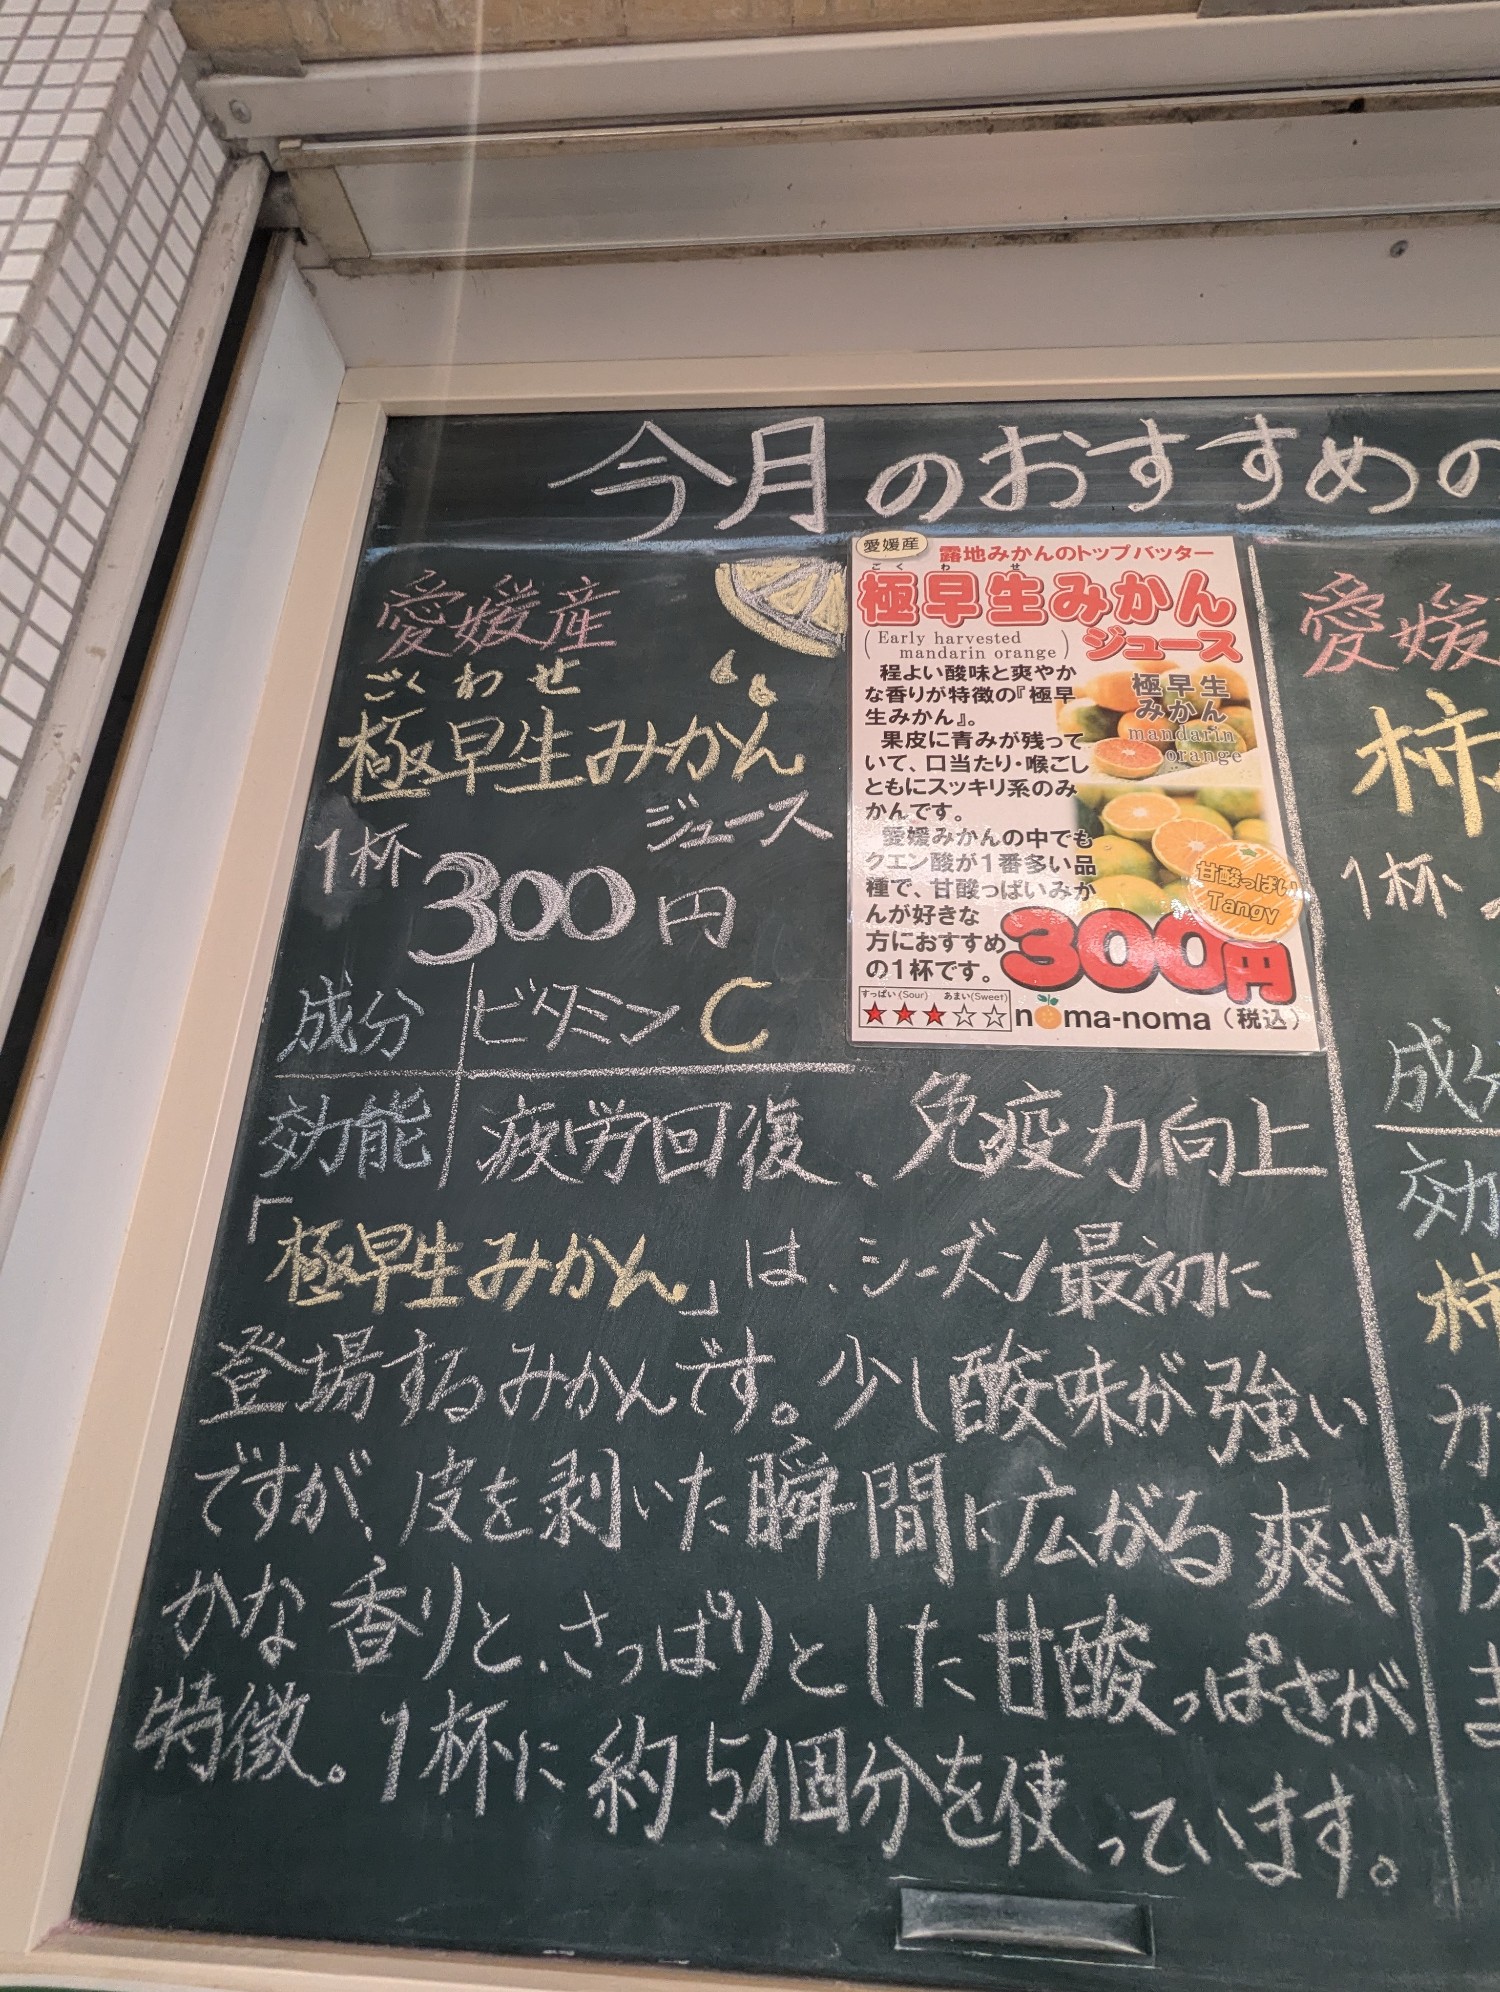 今月のおすすめの
愛媛産
ごくわせ
極早生みかん
ジュース
1杯 300円
成分 ビタミンC
効能 疲労回復、免疫力向上
「極早生みかん」は、シーズン最初に
登場するみかんです。少し酸味が強い
ですが、皮を剥いた瞬間に広がる爽や
かな香りと、さっぱりとした甘酸っぱさが
特徴。1杯に約5個分を使っています。
愛媛産 露地みかんのトップバッター
ごくわせ
極早生みかん
(Early harvested
mandarin orange)
ジュース
程よい酸味と爽やか
な香りが特徴の『極早
生みかん』。
果皮に青みが残って
いて、口当たり・喉ごし
ともにスッキリ系のみ
かんです。
愛媛みかんの中でも
クエン酸が1番多い品
種で、甘酸っぱいみか
んが好きな
方におすすめ
の1杯です。
極早生
みかん
mandarin
orange
甘酸っぱい
Tangy
300円
すっぱい(Sour) あまい(Sweet)
★★★☆☆
noma-noma (税込)
愛媛
柿
1杯
成分
効
柿
か
皮